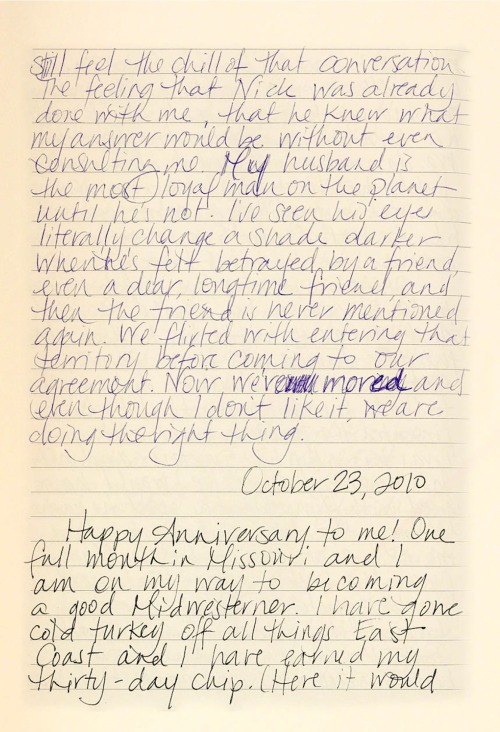 still feel the chill of that conversation.
The feeling that Nick was already
done with me, that he knew what
my answer would be without even
consulting me. My husband is
the most loyal man on the planet
until he's not. I've seen his eyes
literally change a shade darker
when he's felt betrayed by a friend,
even a dear, longtime friend, and
then the friend is never mentioned
again. We flirted with entering that
territory before coming to our
agreement. Now we've moved and
even though I don't like it, we are
doing the right thing.
October 23, 2010
Happy Anniversary to me! One
full month in Missouri and I
am on my way to becoming
a good Midwesterner. I have gone
cold turkey off all things East
Coast and I have earned my
thirty-day chip. (Here it would